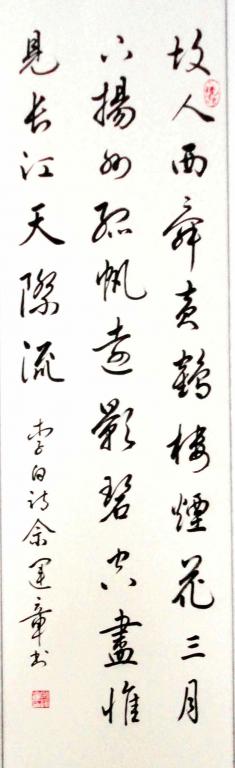 故人西辭黃鶴樓煙花三月
下揚州孤帆遠影碧空盡惟
見长江天際流
李白诗余運章书